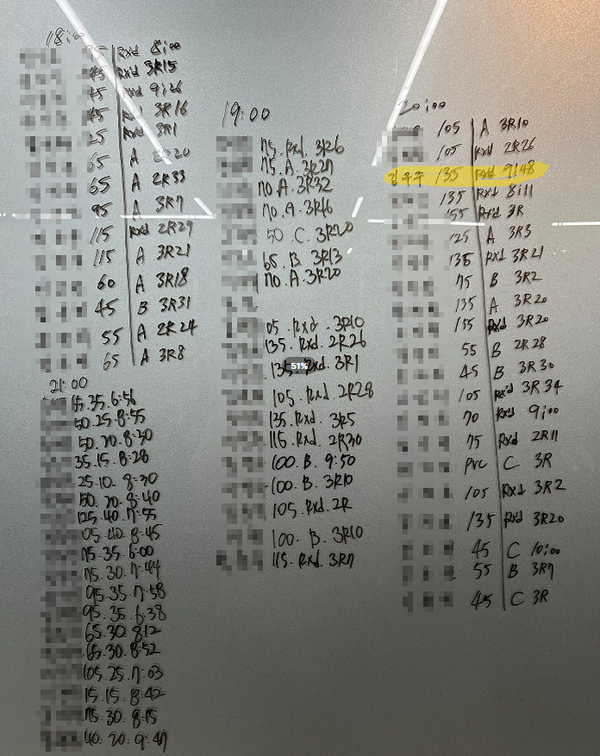 18:00
95 Rxd 8:00
45 Rxd 3R15
45 Rxd 9:26
45 Rxd 3R16
25 Rxd 3R1
65 A 2R20
65 A 2R33
95 A 3R7
115 Rxd 2R29
115 A 3R21
60 A 3R18
45 B 3R31
55 A 2R24
65 A 3R8
21:00
115.35.6:56
50.25.8:55
50.20.8:30
35.15.8:28
25.10.8:30
50.20.8:40
125.40.7:55
05.40.8:45
75.35.6:00
75.30.7:44
95.35.7:58
95.35.6:38
65.30.8:12
65.30.8:52
105.25.7:03
15.15.8:42
75.30.8:15
40.20.9:47
19:00
75.Rxd.3R6
75.A.3R27
70.A.3R32
70.A.3R16
50.C.3R20
65.B.3R13
70.A.3R20
05.Rxd.3R10
135.Rxd.2R26
135.Rxd.3R1
51%
105.Rxd.2R28
135.Rxd.3R5
115.Rxd.2R30
100.B.9:50
100.B.3R10
105.Rxd.2R
100.B.3R10
115.Rxd.3R7
20:00
105 A 3R10
105 Rxd 2R26
김우주 135 Rxd 9:48
135 Rxd 8:11
155 Rxd 3R
125 A 3R3
135 Rxd 3R21
75 B 3R2
135 A 3R20
155 Rxd 3R20
55 B 2R28
45 B 3R30
105 Rx'd 3R34
70 Rxd 9:00
75 Rxd 2R11
PVC C 3R
105 Rxd 3R2
135 Rxd 3R20
45 C 10:00
55 B 3R7
45 C 3R